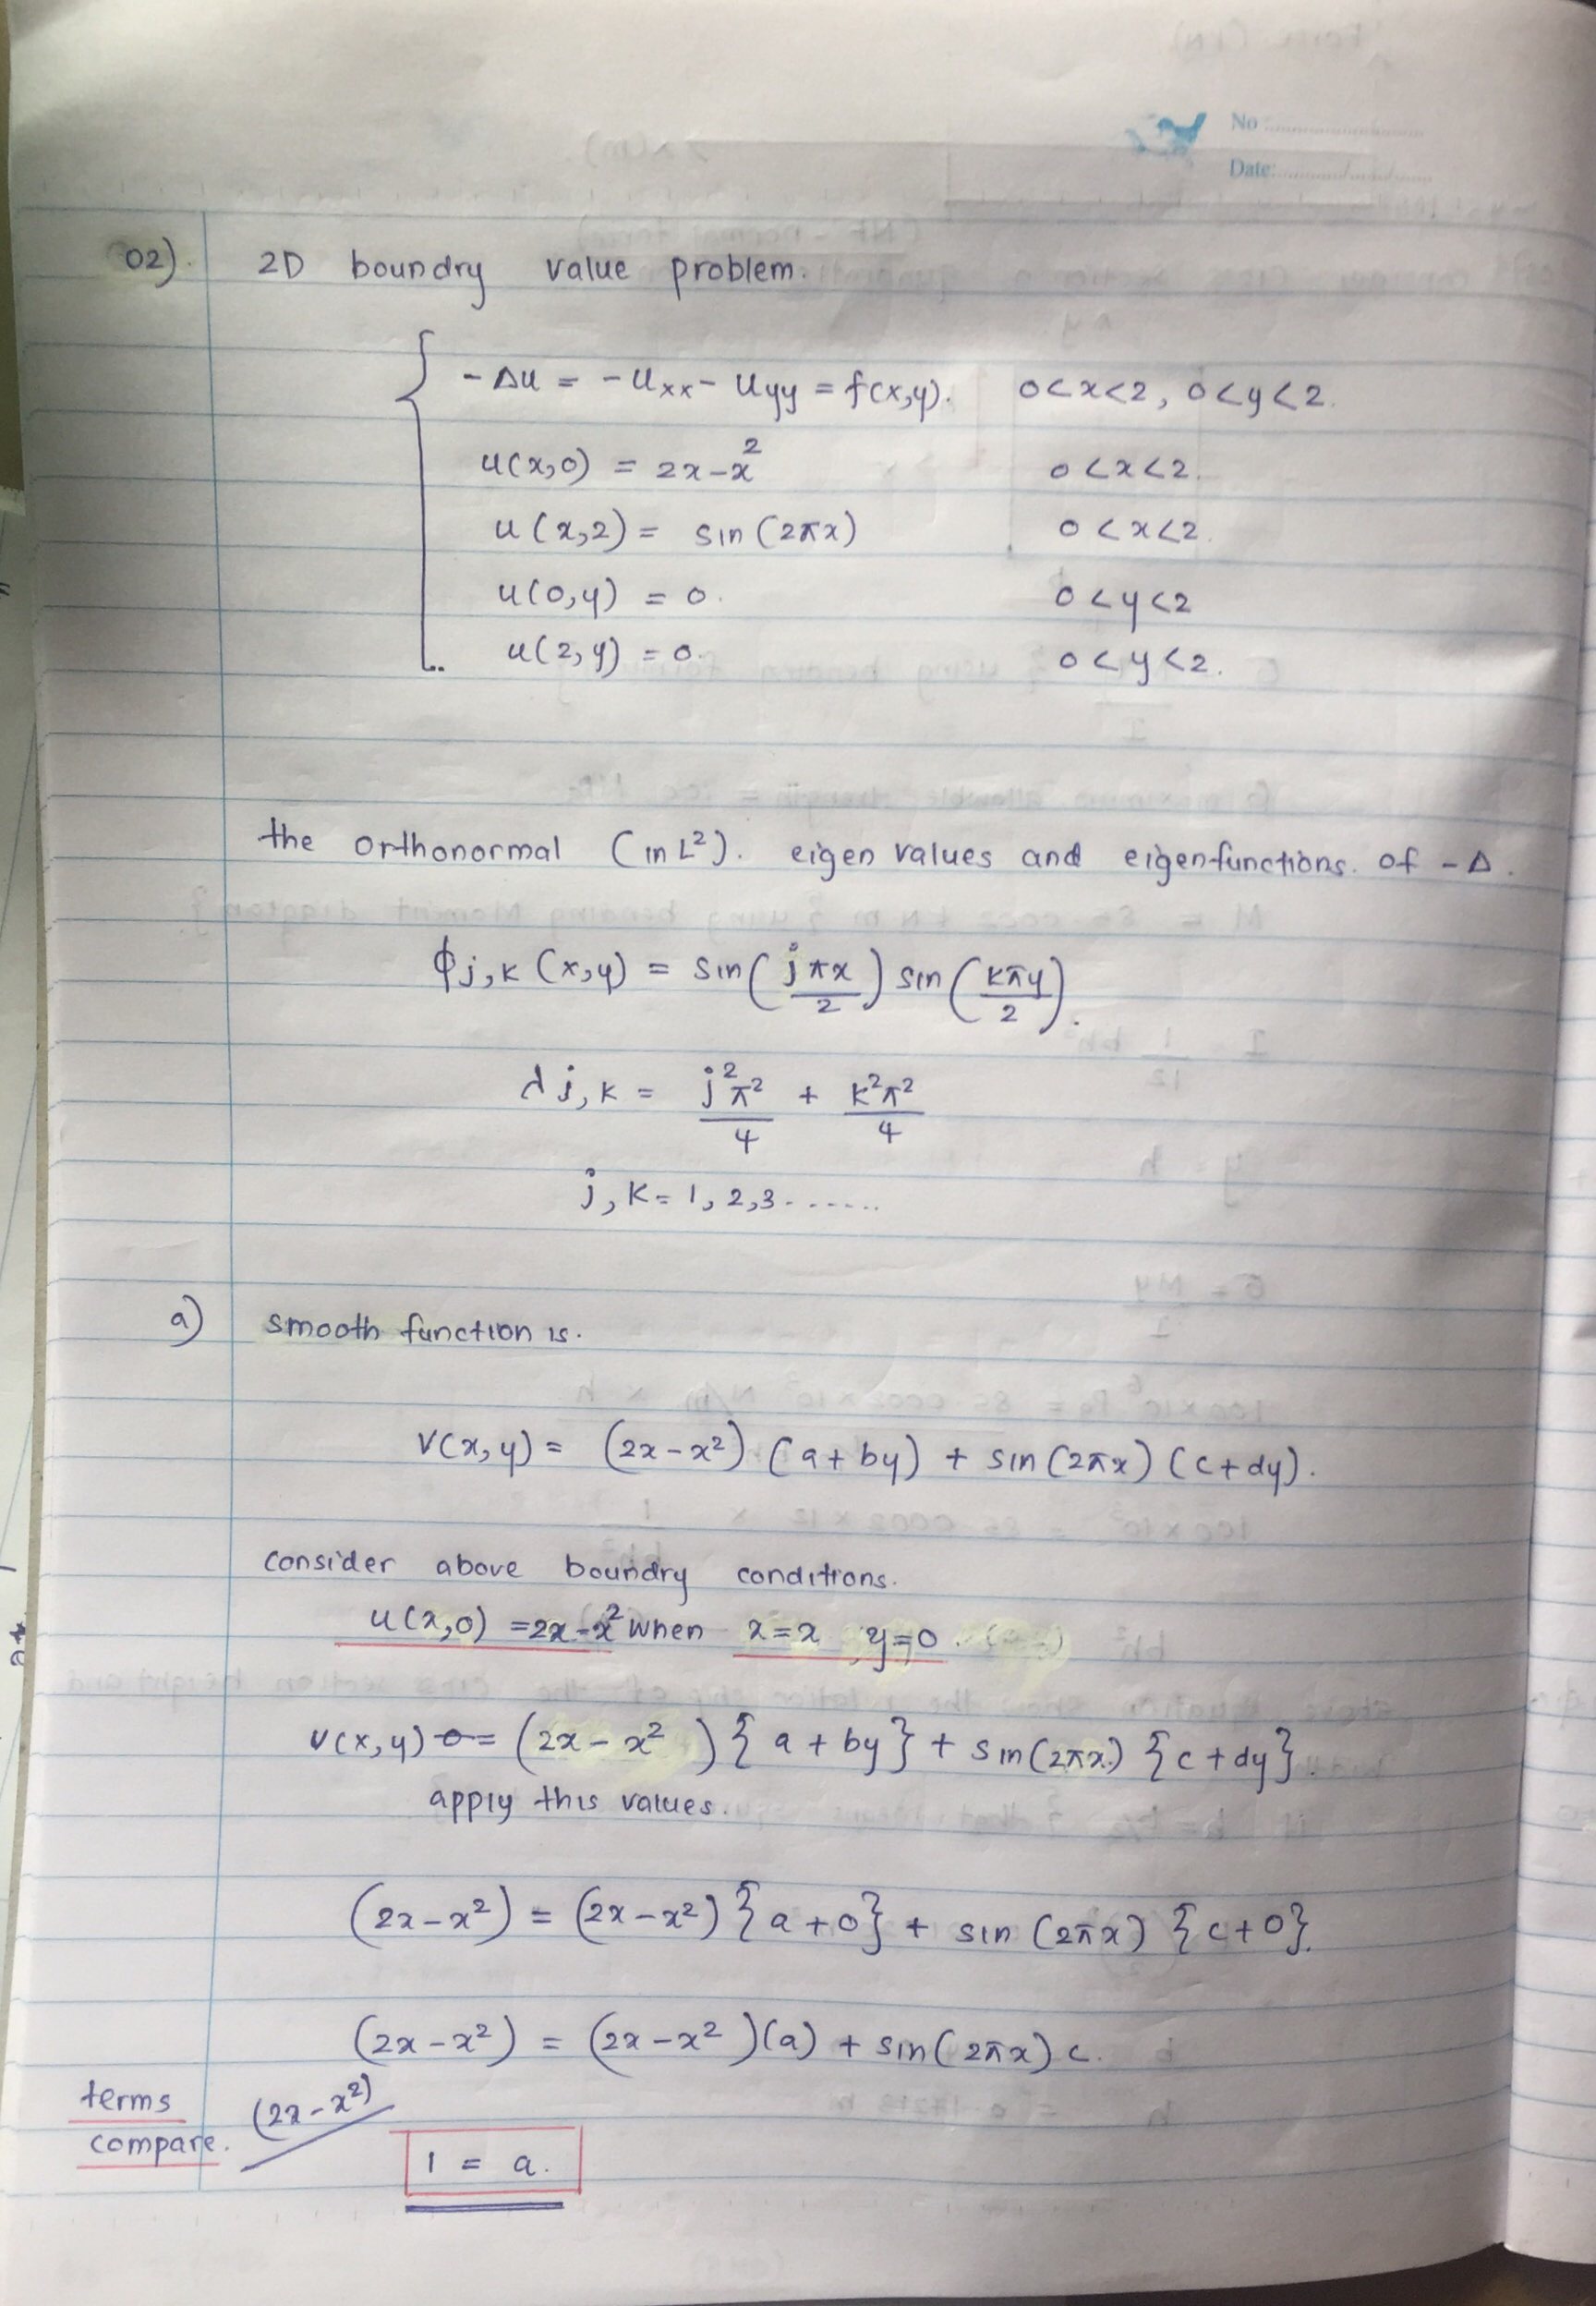 No
Date:
02). 2D boundry value problem.
-Δu = -uxx - uyy = f(x,y). 0<x<2, 0<y<2.
u(x,0) = 2x-x² 0<x<2.
u(x,2) = sin(2πx) 0<x<2.
u(0,y) = 0. 0<y<2
u(2,y) = 0. 0<y<2.
the orthonormal (in L²). eigen values and eigenfunctions. of -Δ.
ϕj,k (x,y) = sin(jπx/2) sin(kπy/2).
λj,k = j²π²/4 + k²π²/4
j,k = 1,2,3.......
a) smooth function is.
v(x,y) = (2x-x²) (a+by) + sin(2πx) (c+dy).
consider above boundry conditions.
u(x,0) = 2x-x² when x=x, y=0.
v(x,y) = (2x-x²){a+by} + sin(2πx) {c+dy}.
apply this values.
(2x-x²) = (2x-x²){a+0} + sin(2πx) {c+0}.
(2x-x²) = (2x-x²)(a) + sin(2πx) c.
terms
compare. (2x-x²)
1 = a.